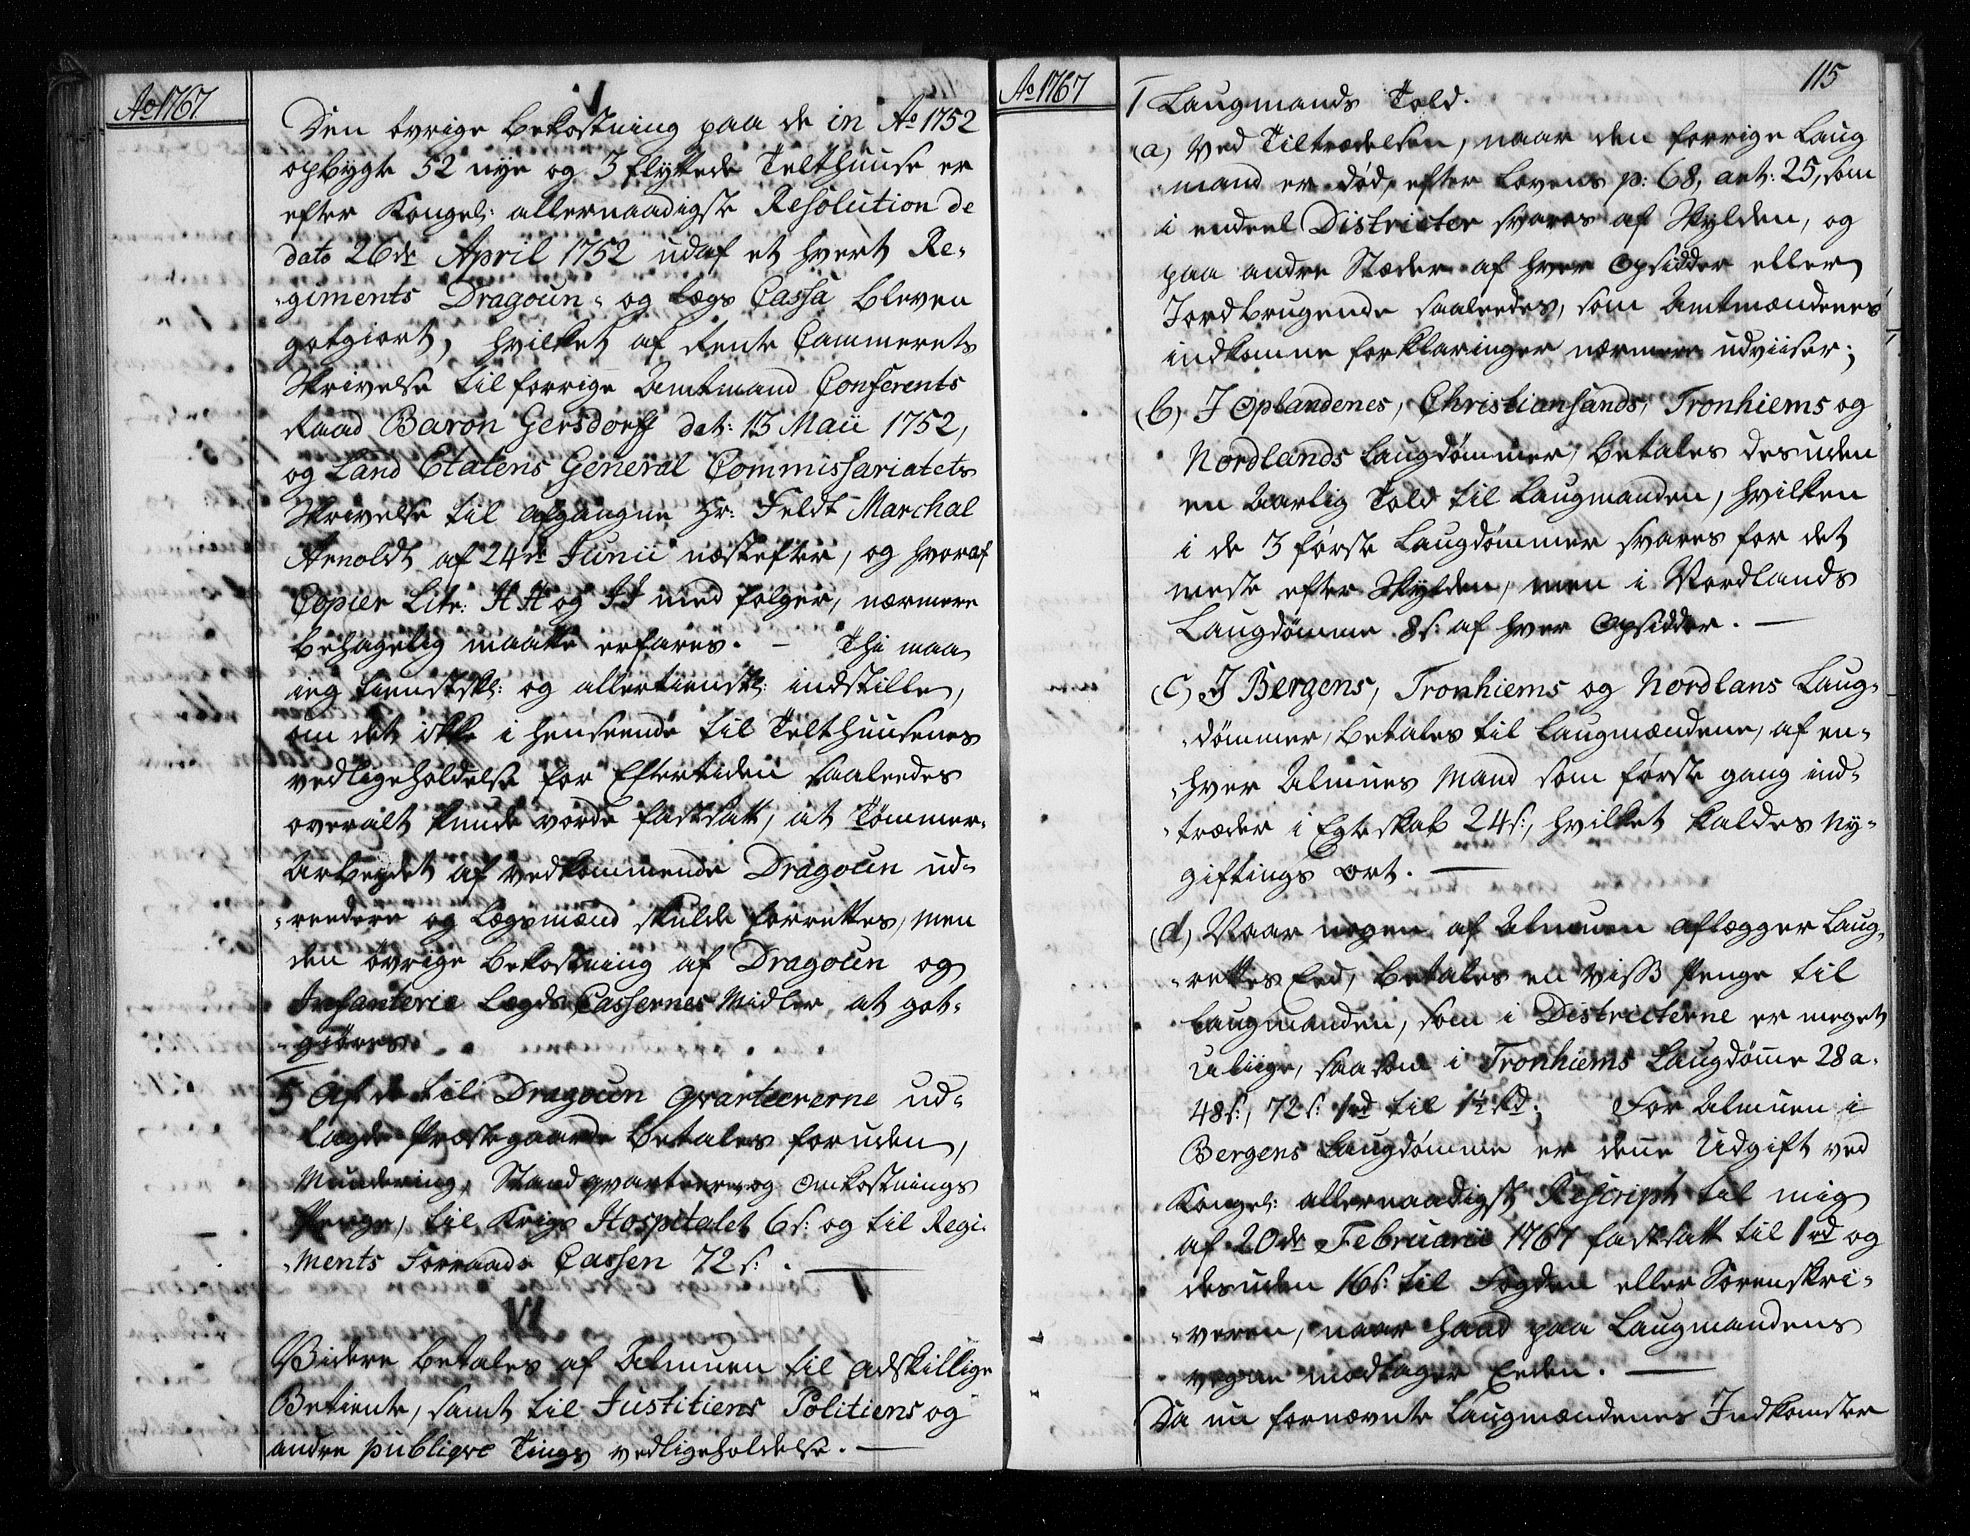 Ao 1767.
Den övrige bekostning paa de in Ao 1752
opbygte 52 nye og 3 flyttede Telthuuse er
efter Kongel: allernaadigste Resolution de
dato 26de April 1752 udaf et hvert Re-
-giments Dragoun- og lægs Cassa bleven
gotgiort, hvilket af Rente Cammerets
Skrivelse til forrige Amtmand Conferents
Raad Baron Gersdorff dat: 13 Maii 1752,
og Land Etatens General Commissariatets
Skrivelse til afgangne Hr: Feldt Marchal
Arnoldt af 24de Junii næstefter, og hvoraf
Copier Litr: HH og II med følger, nærmere
behagelig maatte erfares. — Thi maa
ieg tienstskl: og allertienstl: indstille,
om det ikke i henseende til Telthuusenes
vedligeholdelse for Eftertiden saaledes
overalt kunde vorde fastsatt, at Tömmer-
Arbeydet af vedkommende Dragoun ud-
-reedere og Lægsmænd skulde forrettes, men
den övrige bekostning af Dragoun og
Infanterie Lægds Cassernes Midler at got-
-giöres.
5 Af de til Dragoun qvarteererne ud-
lagde Præstegaarde betales foruden,
Mundering, Standqvarteer og omkostnings
Penge, til Krigs Hospitalet 6 s: og til Regi-
-ments Forraads Cassen 72 s: . —
VI
Videre betales af Almuen til adskillige
Betiente, samt til Justitiens Politiens og
andre publiqve Tings vedligeholdelse. —
Ao 1767
115
1 Laugmands Told.
(a) Ved Tiltrædelsen, naar den forrige Laug
-mand er död, efter Lovens p: 68, art: 25, som
i endeel Districter svares af Skylden, og
paa andre Stæder af hver Opsidder eller
Jordbrugende saaledes, som Amtmændenes
indkomne forklaringer nærmere udviiser;
(b) I Oplandenes, Christiansands, Tronhiems og
Nordlands Laugdömmer, betales desuden
en Aarlig Told til Laugmanden, hvilken
i de 3 förste Laugdömmer svares for det
meste efter Skylden, men i Nordlands
Laugdömme 8 s: af hver Opsidder. —
(c) I Bergens, Tronhiems og Nordlans Laug-
-dömmer, betales til Laugmændene, af en-
-hver Almues Mand som förste gang ind-
-træder i Egteskab 24 s:, hvilket kaldes Ny-
giftings Ort. —
(d) Naar nogen af Almuen aflægger Laug-
-rettes Eed, betales en viss Penge til
Laugmanden, som i Districterne er meget
uliige, saasom i Tronhiems Laugdömme 28 a
48 s:, 72 s: 1 rd til 1½ rd; For Almuen i
Bergens Laugdömme er denne Udgift ved
Kongel: allernaadigst Rescript til mig
af 20de Februarii 1767 fastsatt til 1 rd og
desuden 16 s: til Fogden eller Sorenskri-
-veren, naar hand paa Laugmandens
vegne modtager Eeden. —
Da nu fornævnte Laugmændenes Indkomster